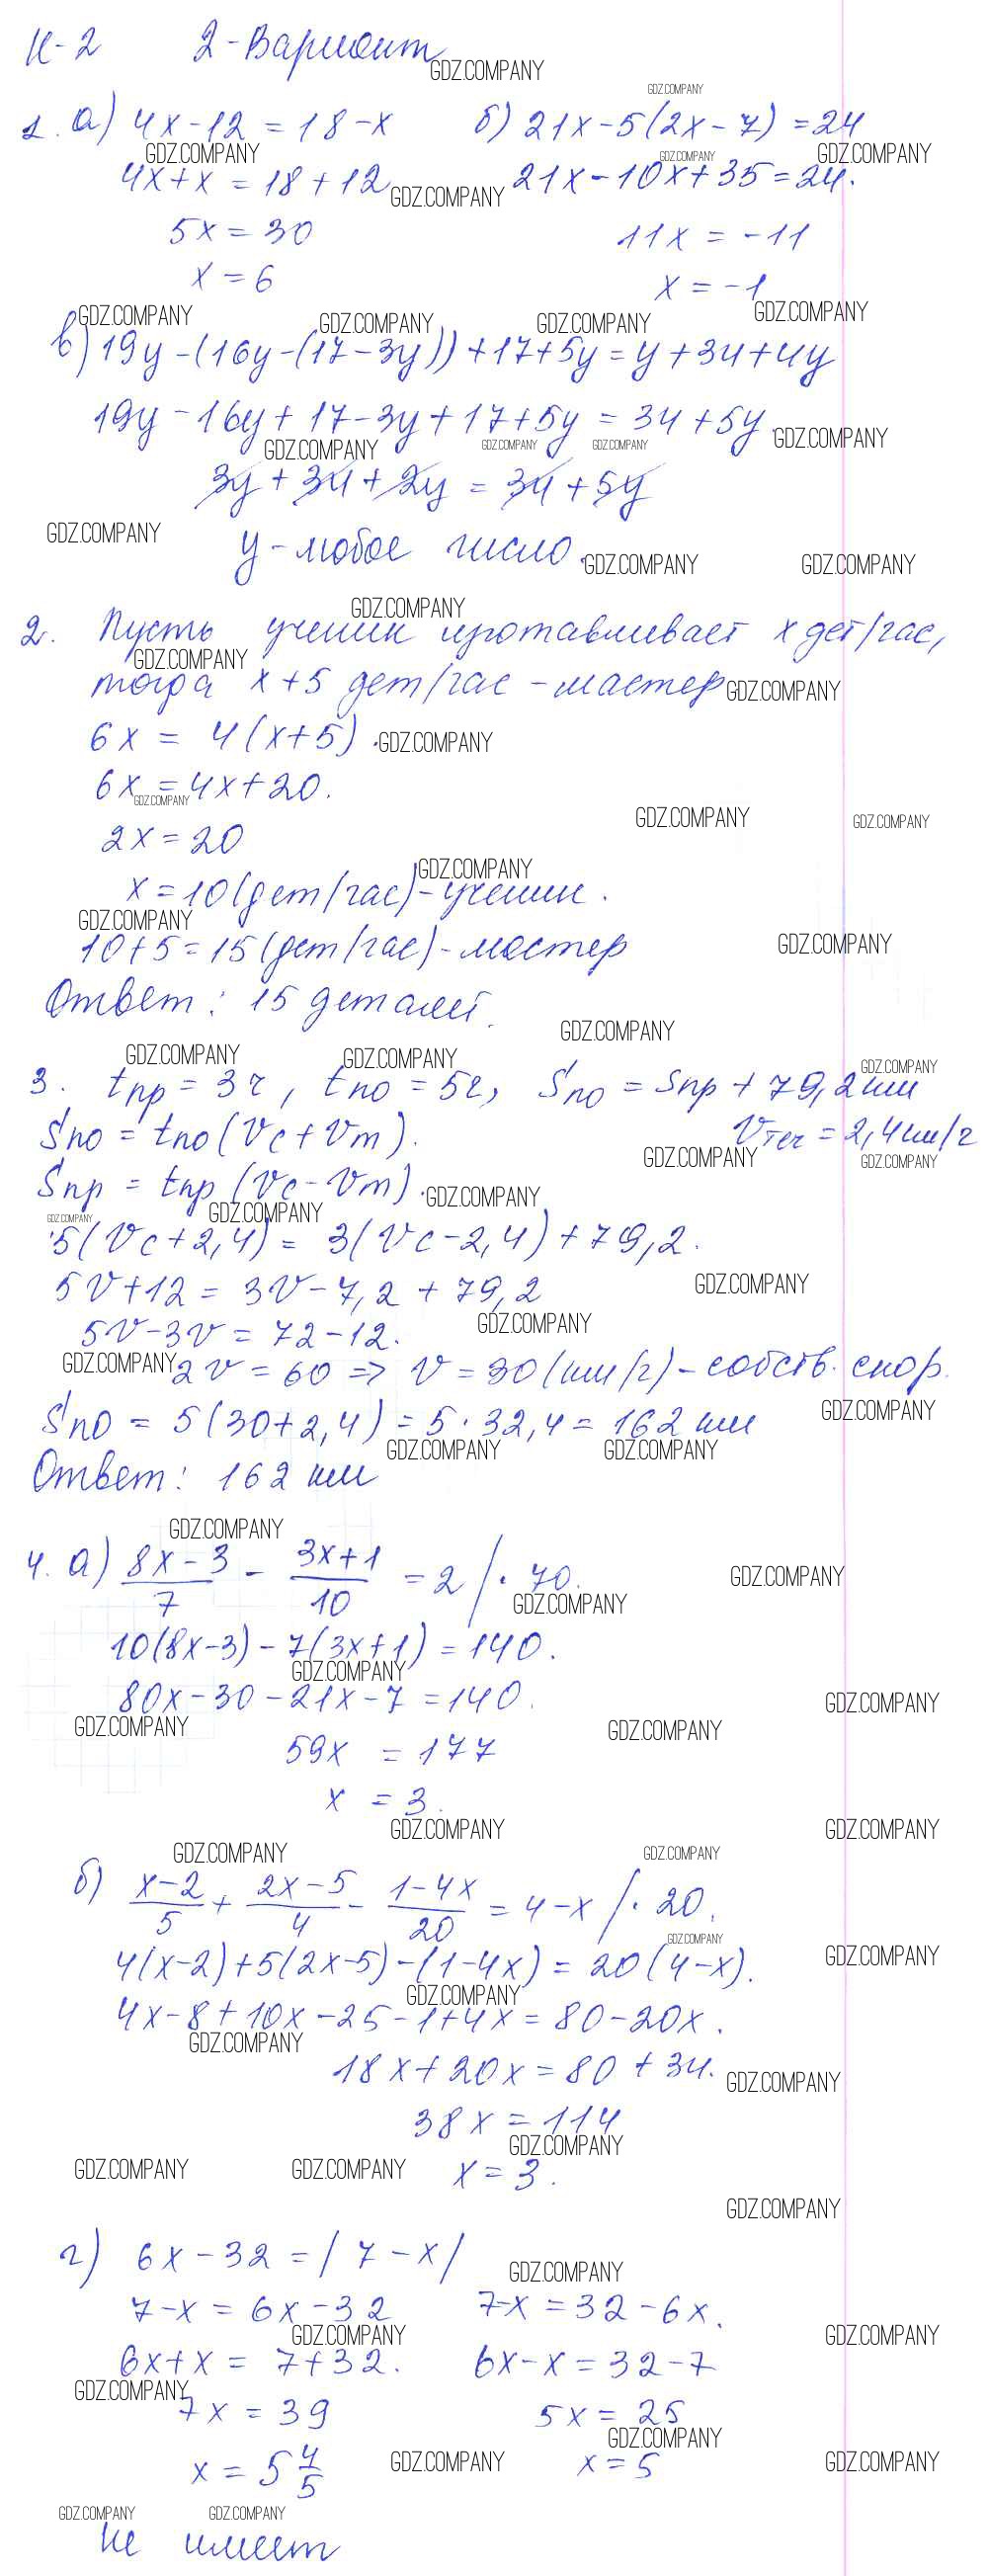 К-2 2-Вариант
1. а) 4x-12 = 18-x б) 21x-5(2x-7) = 24
4x+x = 18+12 21x-10x+35=24.
5x = 30 11x = -11
x = 6 x = -1
в) 19y-(16y-(17-3y))+17+5y = y+34+4y
19y-16y+17-3y+17+5y = 34+5y.
3y+34+2y = 34+5y
y-любое число.
2. Пусть ученик изготавливает x дет/час,
тогда x+5 дет/час - мастер
6x = 4(x+5).
6x = 4x+20.
2x = 20
x = 10 (дет/час) - ученик.
10+5 = 15 (дет/час) - мастер
Ответ: 15 деталей.
3. tпр = 3ч, tпо = 5ч, Sпо = Sпр + 79,2 км
Sпо = tпо(Vс+Vт). Vтеч = 2,4 км/ч
Sпр = tпр(Vс-Vт).
5(Vс+2,4) = 3(Vс-2,4)+79,2.
5V+12 = 3V-7,2+79,2
5V-3V = 72-12.
2V = 60 => V = 30 (км/ч) - собств. скор.
Sпо = 5(30+2,4) = 5·32,4 = 162 км
Ответ: 162 км
4. а) (8x-3)/7 - (3x+1)/10 = 2 /·70.
10(8x-3)-7(3x+1) = 140.
80x-30-21x-7 = 140.
59x = 177
x = 3.
б) (x-2)/5 + (2x-5)/4 - (1-4x)/20 = 4-x /·20.
4(x-2)+5(2x-5)-(1-4x) = 20(4-x).
4x-8+10x-25-1+4x = 80-20x.
18x+20x = 80+34.
38x = 114
x = 3.
г) 6x-32 = |7-x|
7-x = 6x-32 7-x = 32-6x.
6x+x = 7+32. 6x-x = 32-7
7x = 39 5x = 25
x = 5 4/5 x = 5
не имеет
GDZ.COMPANY